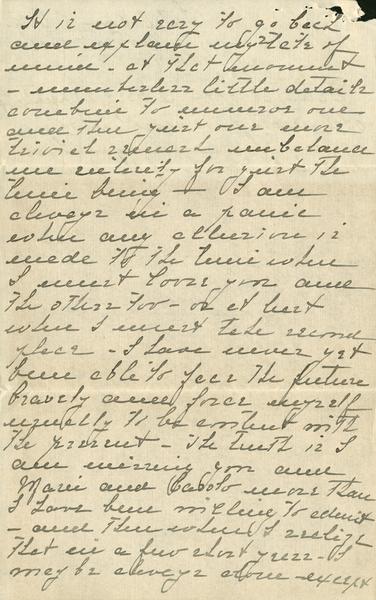 It is not easy to go back
and explain my state of
mind - at that moment
- numberless little details
combine to unnerve one
and then just one more
trivial remark unbalances
me entirely for just the
time being - I am
always in a panic
when any allusion is
made to the time when
I must lose you and
the other too - or at best
when I must take second
place - I have never yet
been able to face the future
bravely and force myself
usually to be content with
the present - The truth is I
am missing you and
and more than
I have been willing to admit
- and then when I realize
that in a few short years - I
may be always alone - except